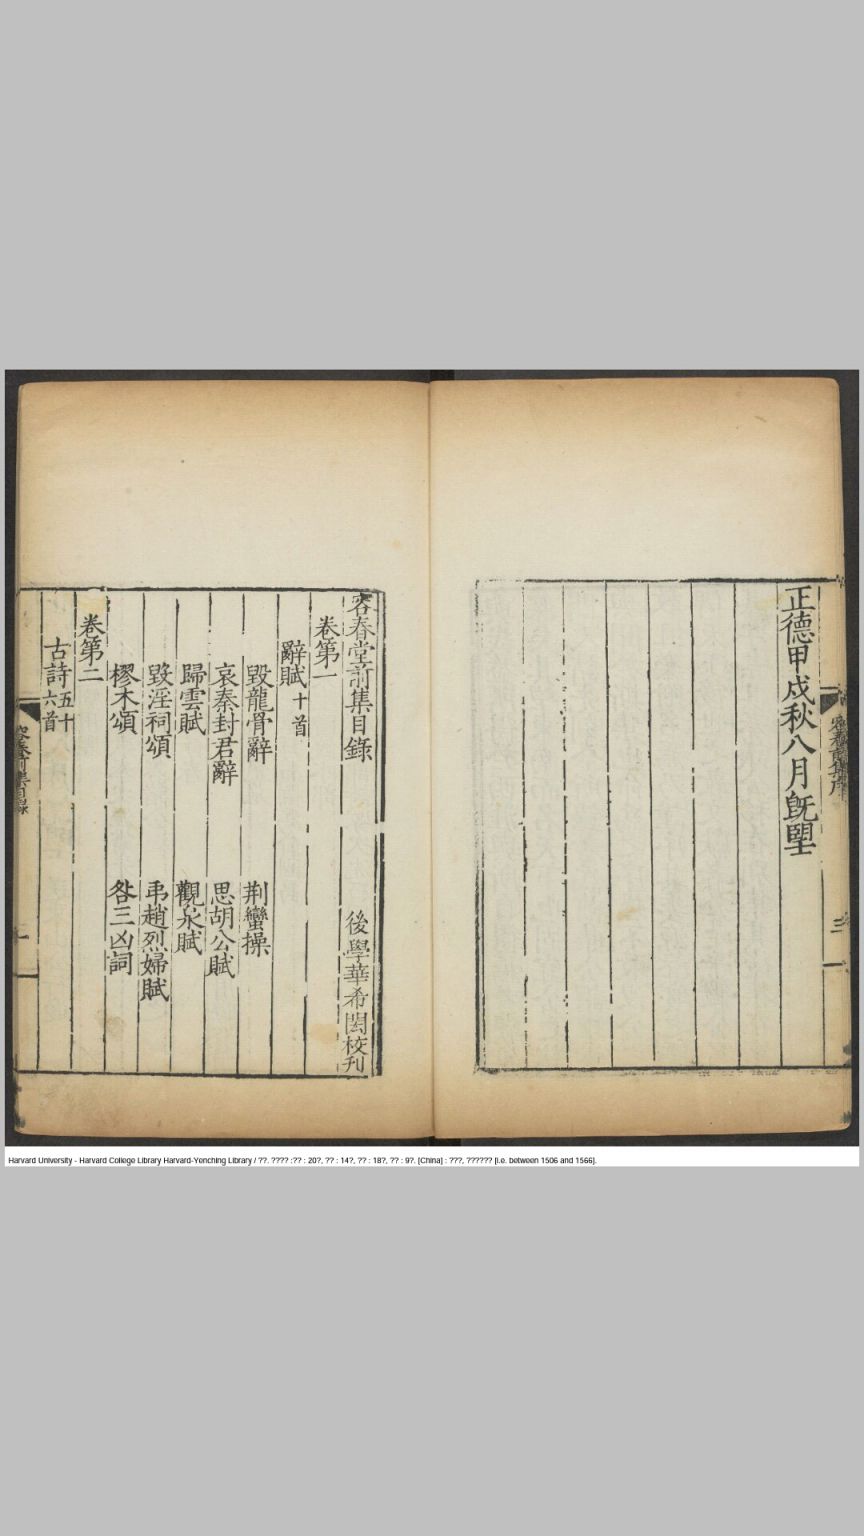 正德甲戍秋八月旣朢
容春前集序
三
容春堂前集目錄
後學華希閎校刋
卷第一
辭賦十首
毀龍骨辭
荆蠻操
哀秦封君辭
思胡公賦
歸雲賦
觀泉賦
毀淫祠頌
弔趙烈婦賦
樛木頌
咎三凶詞
卷第二
古詩五十六首
容春前集目錄
一
Harvard University - Harvard College Library Harvard-Yenching Library / ??. ???? :?? : 20?, ?? : 14?, ?? : 18?, ?? : 9?. [China] : ???, ?????? [i.e. between 1506 and 1566].